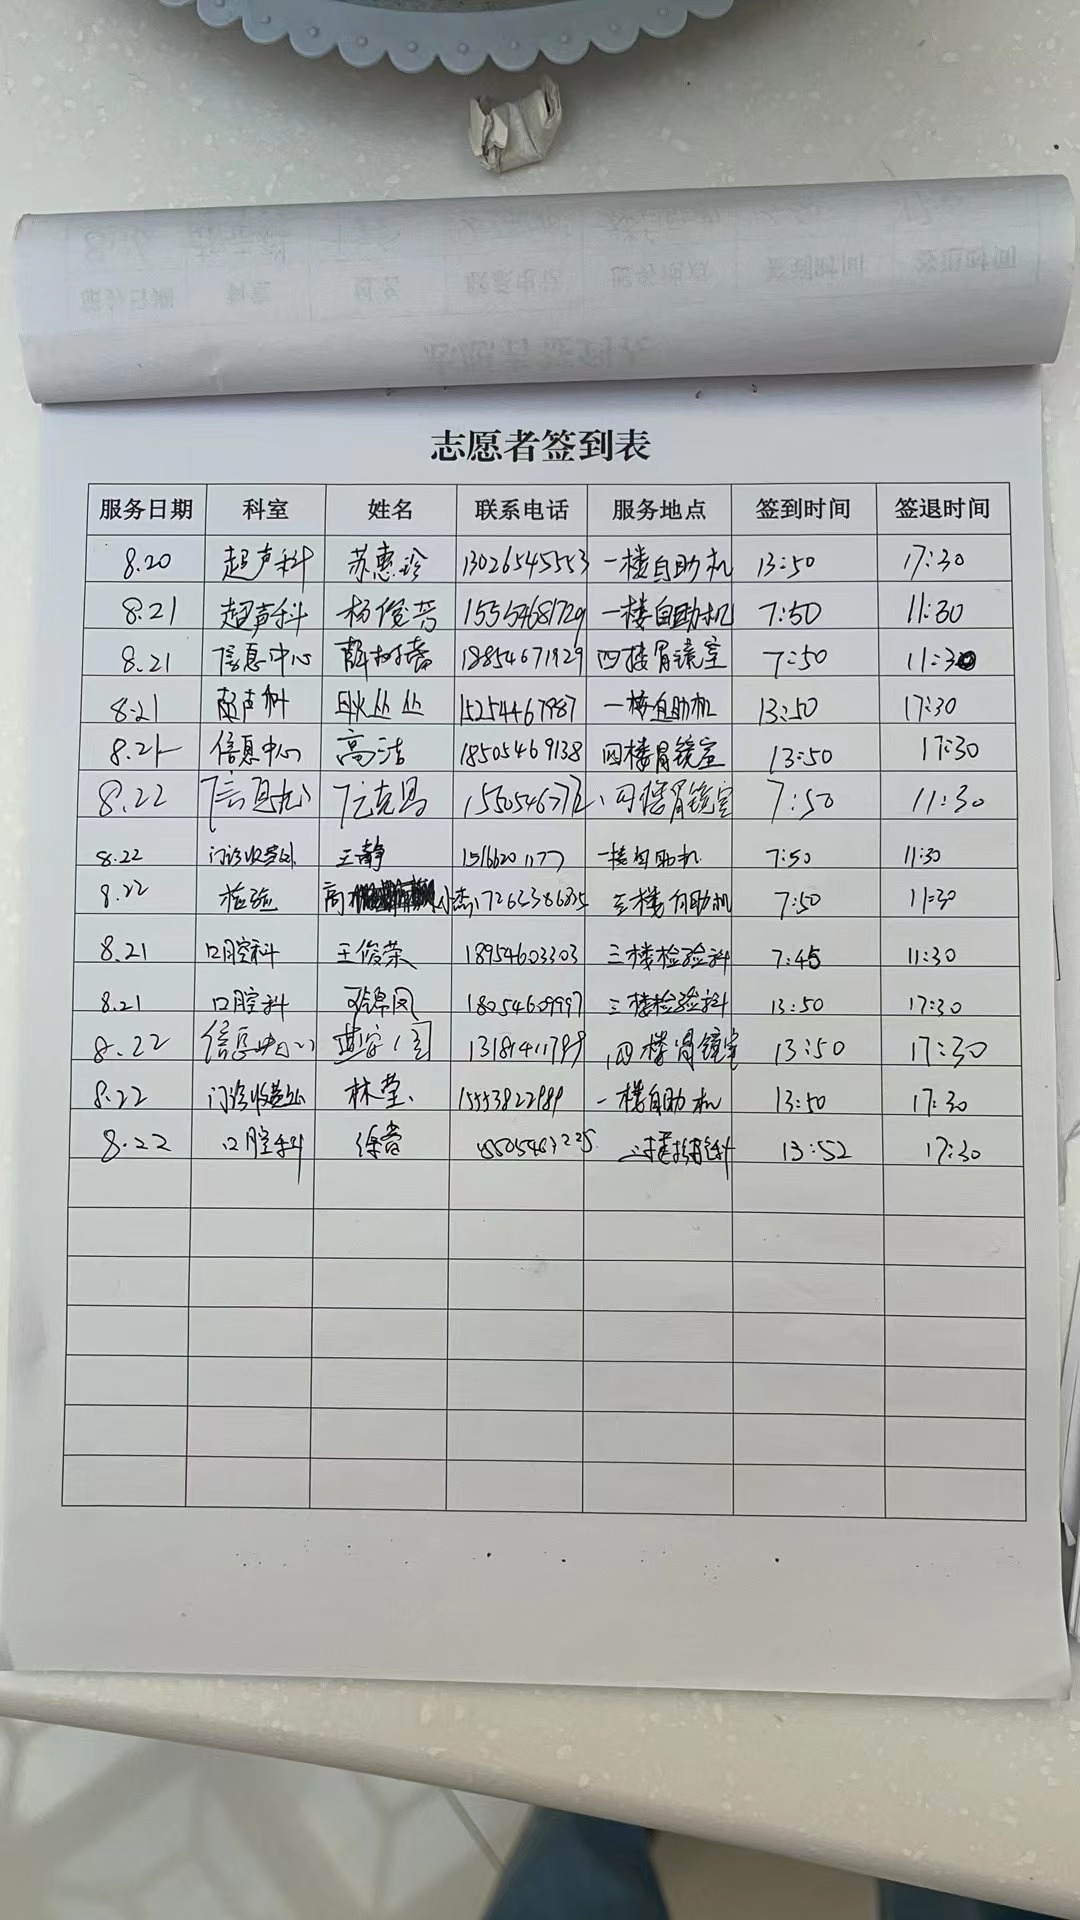 志愿者签到表
服务日期 科室 姓名 联系电话 服务地点 签到时间 签退时间
8.20 超声科 苏惠玲 13026545553 一楼自助机 13:50 17:30
8.21 超声科 杨俊芳 15554681729 一楼自助机 7:50 11:30
8.21 信息中心 薛树蕾 18854671929 四楼胃镜室 7:50 11:30
8.21 超声科 耿丛丛 15254467987 一楼自助机 13:50 17:30
8.21 信息中心 高洁 18505469138 四楼胃镜室 13:50 17:30
8.22 四楼胃镜室 7:50 11:30
8.22 门诊收费处 王静 一楼自助机 7:50 11:30
8.22 检验 高 自助机 7:50 11:30
8.21 口腔科 王俊荣 18954603303 三楼检验科 7:45 11:30
8.21 口腔科 锦凤 18054609997 三楼检验科 13:50 17:30
8.22 信息中心 四楼胃镜室 13:50 17:30
8.22 门诊收费处 林莹 15553822989 一楼自助机 13:50 17:30
8.22 口腔科 徐 13:52 17:30